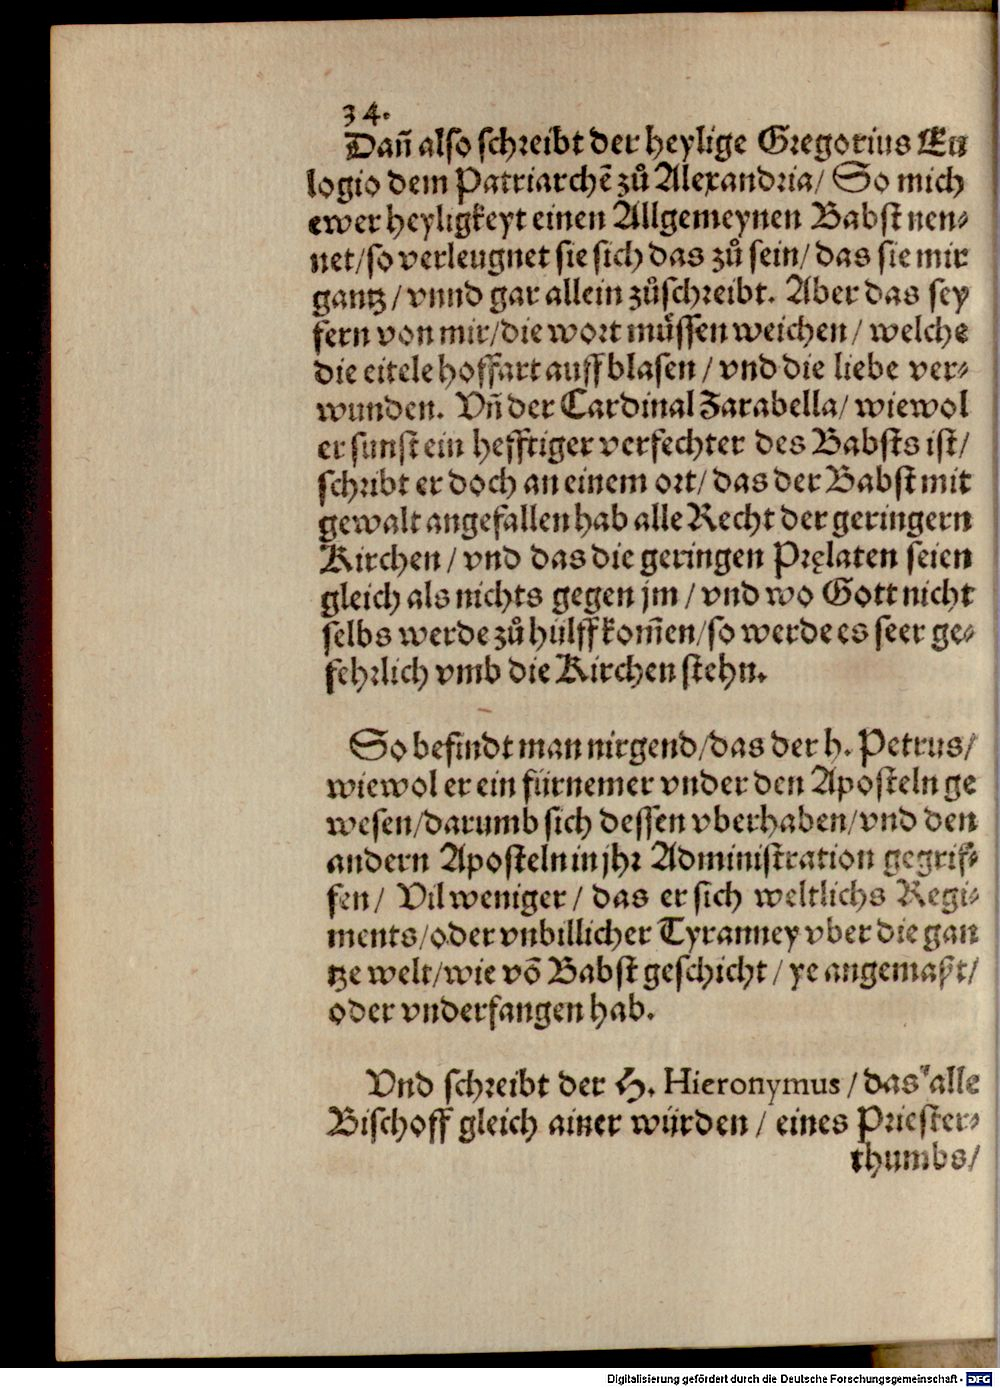 34.
Dañ also schreibt der heylige Gregorius Eu
logio dem Patriarchẽ zů Alexandria/ So mich
ewer heyligkeyt einen Allgemeynen Babst nen-
net/so verleugnet sie sich das zů sein/ das sie mir
gantz/ vnnd gar allein zůschreibt. Aber das sey
fern von mir/die wort müssen weichen/ welche
die eitele hoffart auffblasen/ vnd die liebe ver-
wunden. Vñ der Cardinal Zarabella/ wiewol
er sunst ein hefftiger verfechter des Babsts ist/
schribt er doch an einem ort/ das der Babst mit
gewalt angefallen hab alle Recht der geringern
Kirchen/ vnd das die geringen Pręlaten seien
gleich als nichts gegen jm/ vnd wo Gott nicht
selbs werde zů hülff kom̃en/so werde es seer ge-
fehrlich vmb die Kirchen stehn.
So befindt man nirgend/das der h. Petrus/
wiewol er ein fürnemer vnder den Aposteln ge
wesen/darumb sich dessen vberhaben/vnd den
andern Aposteln in jhr Administration gegrif-
fen/ Vil weniger/ das er sich weltlichs Regi-
ments/oder vnbillicher Tyranney vber die gan
tze welt/wie võ Babst geschicht/ ye angemaßt/
oder vnderfangen hab.
Vnd schreibt der H. Hieronymus/das alle
Bischoff gleich ainer würden/ eines Priester-
thumbs/
Digitalisierung gefördert durch die Deutsche Forschungsgemeinschaft - DFG